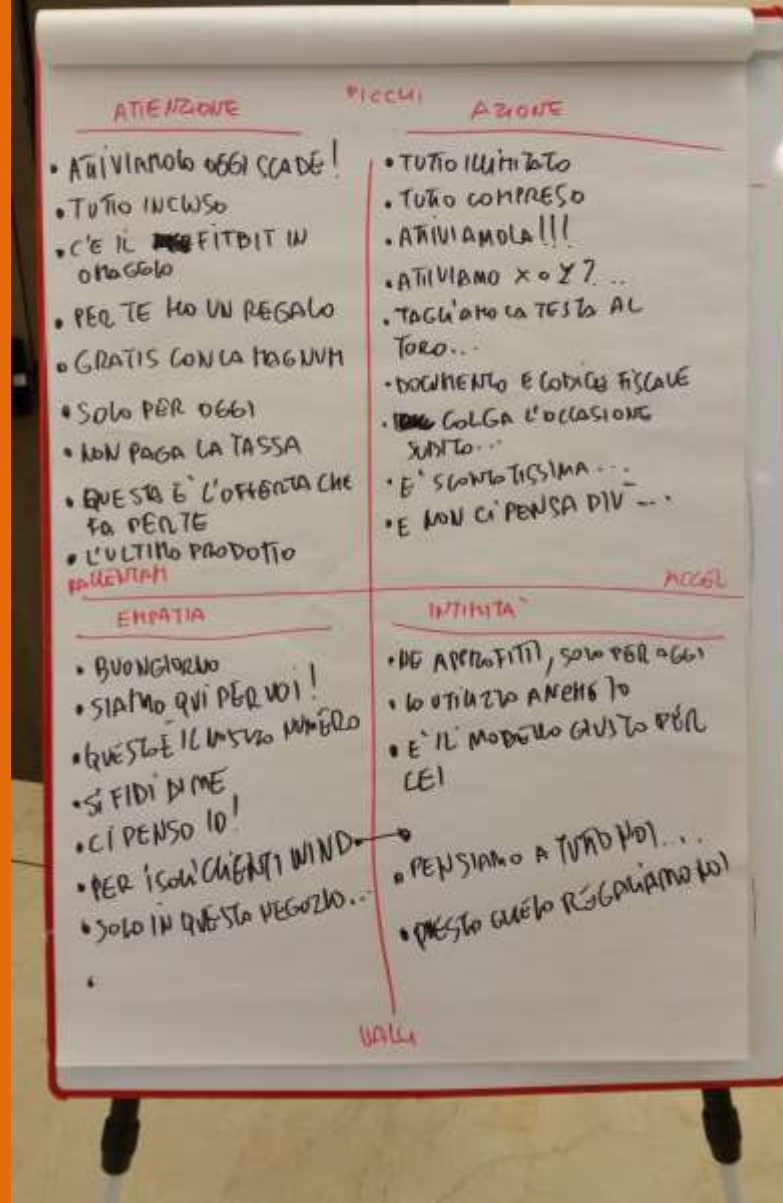 PICCHI
ATTENZIONE
• ATTIVIAMOLO OGGI SCADE!
• TUTTO INCLUSO
• C'E IL FITBIT IN
OMAGGIO
• PER TE HO UN REGALO
• GRATIS CON LA MAGNUM
• SOLO PER OGGI
• NON PAGA LA TASSA
• QUESTA E' L'OFFERTA CHE
FA PER TE
• L'ULTIMO PRODOTTO
AZIONE
• TUTTO ILLIMITATO
• TUTTO COMPRESO
• ATTIVIAMOLA!!!
• ATTIVIAMO X O Y?...
• TAGLIAMO LA TESTA AL
TORO...
• DOCUMENTO E CODICE FISCALE
• COLGA L'OCCASIONE
SUBITO...
• E' SCONTATISSIMA...
• E NON CI PENSA PIU'...
RALLENTAM
ACCEL
EMPATIA
• BUONGIORNO
• SIAMO QUI PER VOI!
• QUESTO E IL NOSTRO NUMERO
• SI FIDI DI ME
• CI PENSO IO!
• PER I SOLI CLIENTI WIND
• SOLO IN QUESTO NEGOZIO...
INTIMITA'
• NE APPROFITTI, SOLO PER OGGI
• LO UTILIZZO ANCHE IO
• E' IL MODELLO GIUSTO PER
LEI
• PENSIAMO A TUTTO NOI...
• QUESTO GLIELO REGALIAMO NOI
VALLI